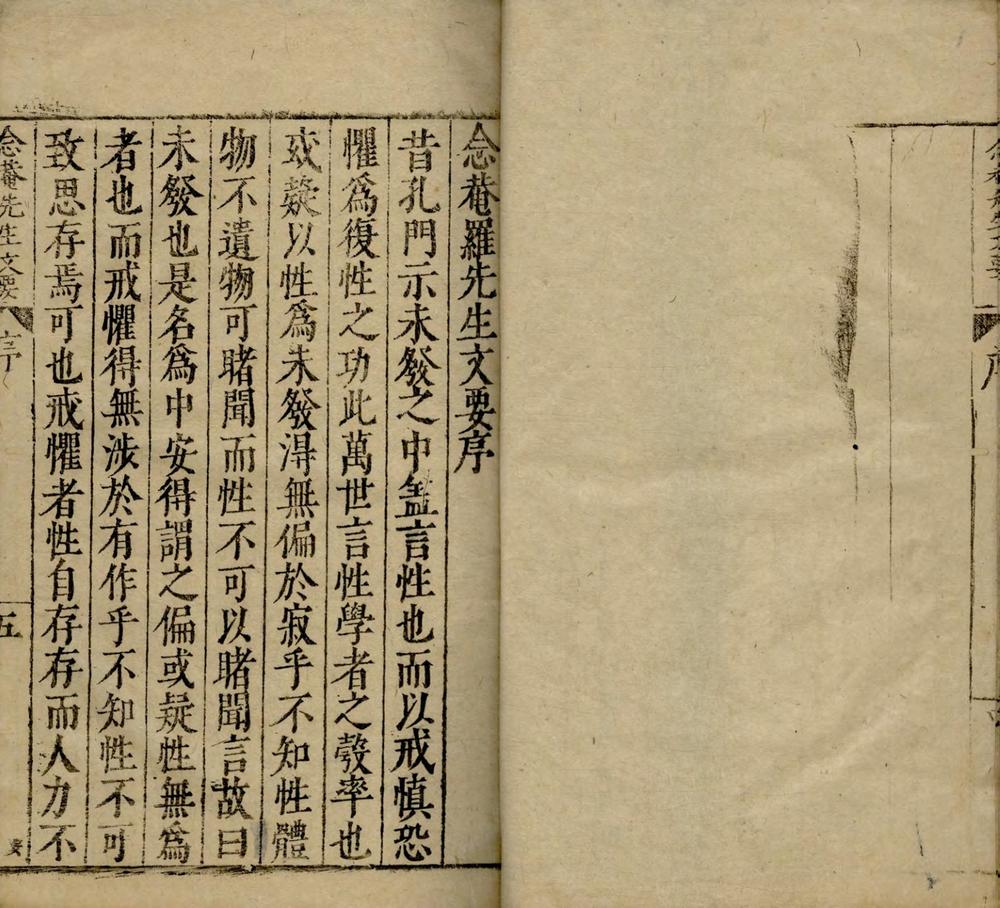 念菴羅先生文要序
昔孔門示未發之中盖言性也而以戒慎恐
懼爲復性之功此萬世言性學者之彀率也
或疑以性爲未發得無偏於寂乎不知性體
物不遺物可睹聞而性不可以睹聞言故曰
未發也是名爲中安得謂之偏或疑性無爲
者也而戒懼得無涉於有作乎不知性不可
致思存焉可也戒懼者性自存存而人力不
念菴先生文要
序
五